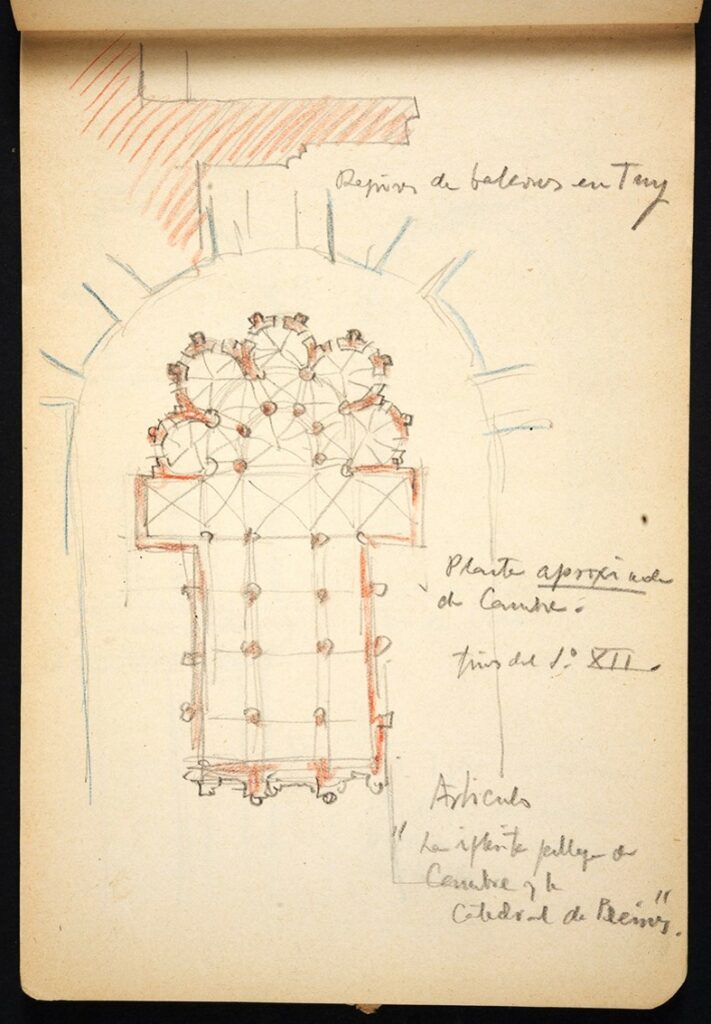 de balcones en Tuy
Planta aproximada
de Cambre.
fines del S.º XII.
Artículo
"La iglesia gallega de
Cambre y la
Catedral de Reims".